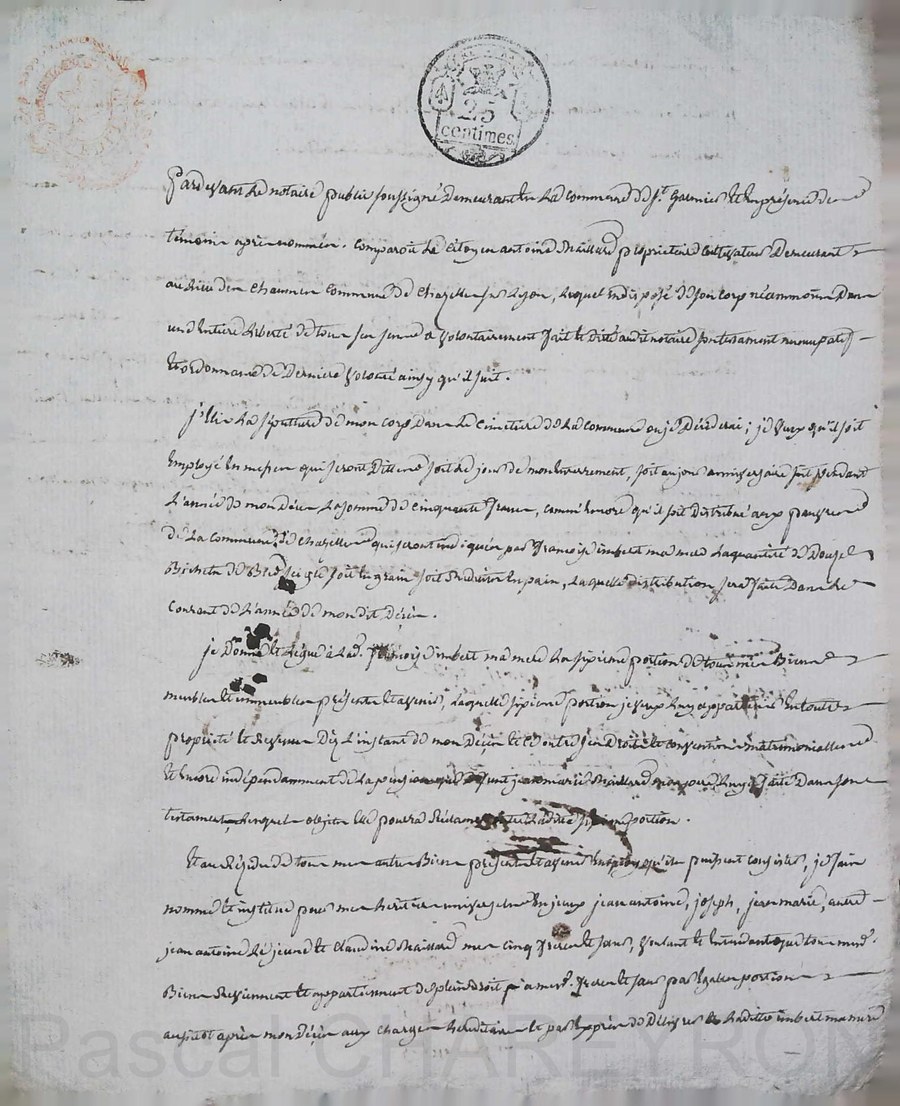 25
centimes
Pardevant le notaire public soussigné demeurant en la commune de St. Galmier et en présence des
témoins après nommés. Comparoit le citoyen antoine Maillard proprietaire cultivateur demeurant
au lieu des Chaumes commune de Chazelles sur Lyon, lequel indisposé de son corps néammoins dans
une entière liberté de tous ses sens a volontairement fait et dicté audit notaire son testament nuncupatif
et ordonnance de dernière volonté ainsy qu'il suit.
j'Elis la sépulture de mon corps dans le cimetière de la commune ou je décéderai; je veux qu'il soit
Employé en messes qui seront dittes soit le jour de mon enterrement, soit au jour anniversaire soit pendant
l'année de mon décès la somme de cinquante francs, comme encore qu'il soit distribué aux pauvres
de la commune de Chazelles qui seront indiqués par françoise imbert ma mere la quantité de Douze
Bichets de Bled seigle soit en grain soit en pain, laquelle distribution sera faite dans le
courant de l'année de mon dit décès.
je Donne et Legue à lad. françoise imbert ma mere la sixieme portion de tous mes Biens
meubles et immeubles présents et avenir, laquelle sixieme portion je veux luy appartenir en toute
propriété et Revenus dez l'instant de mon décès et ce outre ses droits et conventions matrimoniales
et encore indépendamment de la pension que defunt jean marie Maillard mon pere luy a faite dans son
testament, lesquels objets elle pourra Réclamer outre laditte sixieme portion.
Et au Résidu de tous mes autres Biens présents et avenir en quoy qu'ils puissent consister, je fais
nomme et institue pour mes heritiers universels en jceux jean antoine, joseph, jean marie, autre
jean antoine le jeune et claudine Maillard mes cinq freres et sœur, voulant et entendant que tous mesd.
Biens Reviennent et appartiennent de plein droit à mesd. freres et sœur par egales portions
aussitot après mon décès aux charges hereditaires et par exprès de délivrer à laditte imbert ma mere
Pascal CHAREYRON